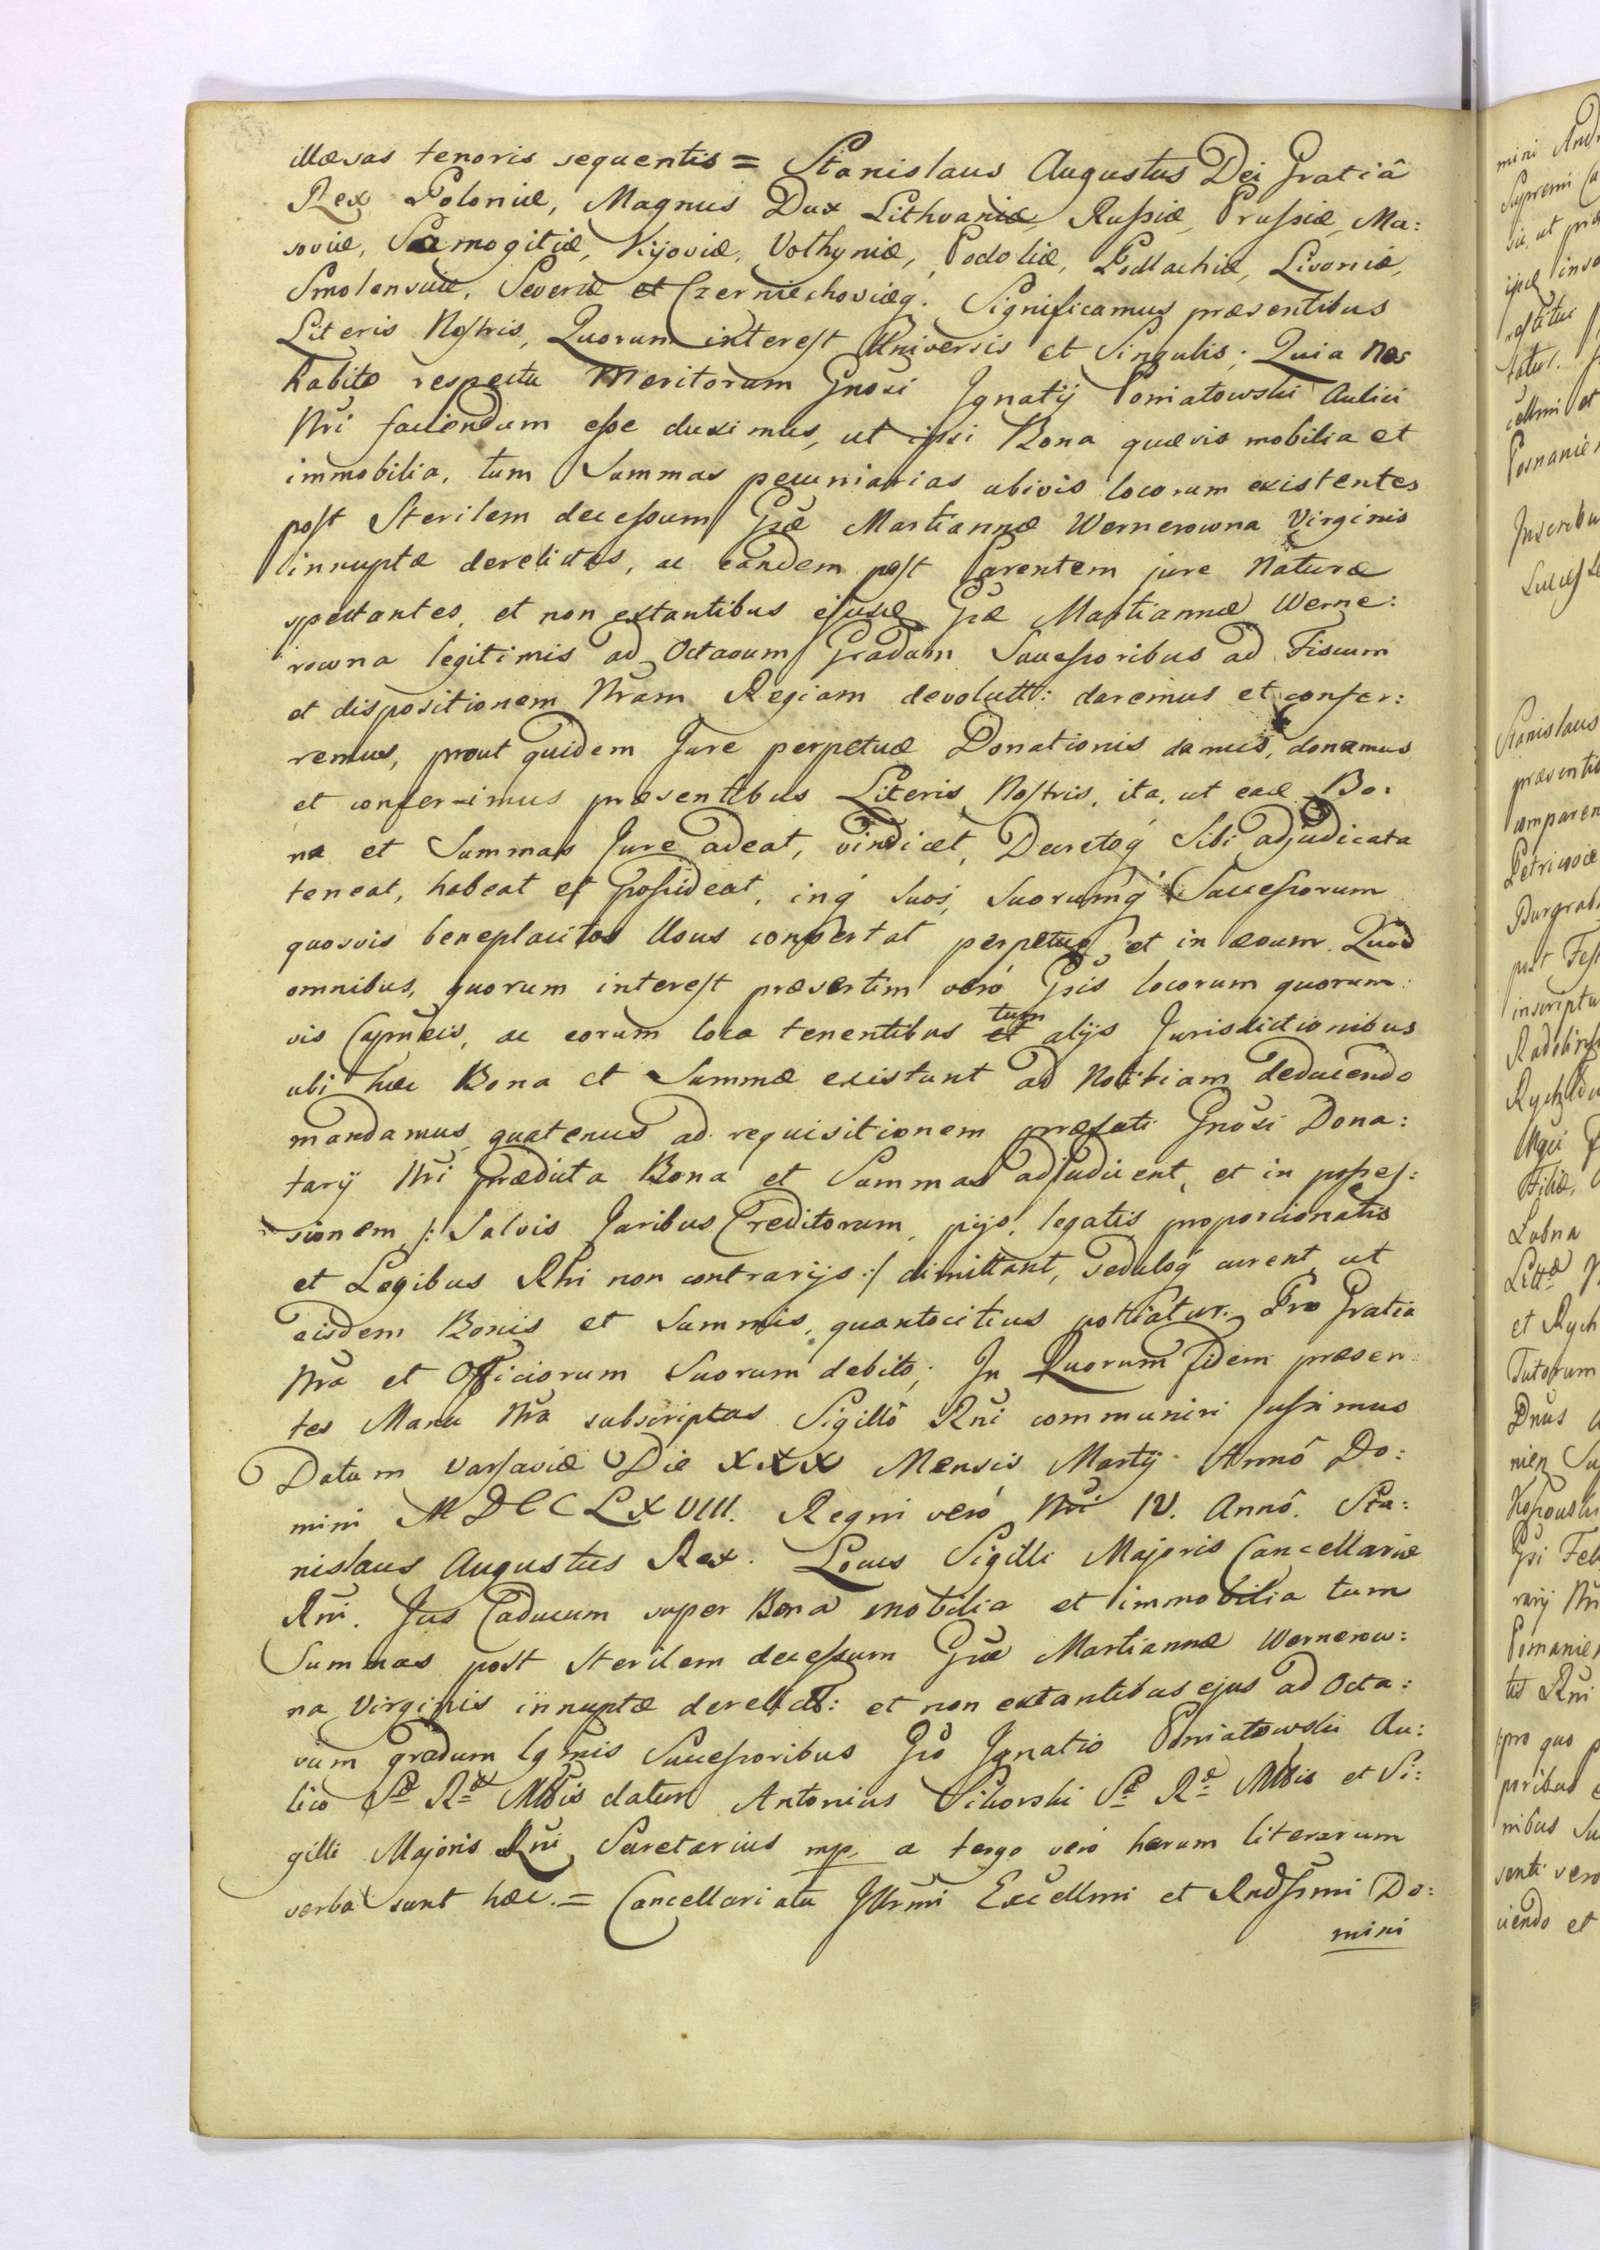 illæsas tenoris sequentis = Stanislaus Augustus Dei Gratiâ
Rex Poloniæ, Magnus Dux Lithvaniæ, Rußiæ, Prußiæ, Ma:
soviæ, Samogitiæ, Kijoviæ, Volhyniæ, Podoliæ, Podlachiæ, Livoniæ,
Smolensciæ, Severiæ et Czerniechoviæq. Significamus præsentibus
Literis Nostris, Quorum interest Universis et Singulis; Quia Nos
habito respectu Meritorum Gnosi Ignatij Poniatowski Aulici
Nri faciendum eße duximus, ut ipsi Bona quævis mobilia et
immobilia, tum Summas pecuniarias ubivis locorum existentes
post Sterilem deceßum Gsæ Martiannæ Wernerowna Virginis
innuptæ derelictas, ac eandem post Parentem jure Naturæ
spectantes, et non extantibus ejusd Gæ Martiannæ Werne:
rowna legitimis ad Octavum Gradum Succeßoribus ad Fiscum
et dispositionem Nram Regiam devolutt: daremus et confer:
remus, prout quidem Jure perpetuæ Donationis damus, donamus
et conferimus præsentibus Literis Nostris, ita, ut eae Bo:
na et Summas Jure adeat, vindicet, Decretoq́ Sibi adjudicata
teneat, habeat et poßideat, inq́ Suos, Suorumq́ Succeßorum
quosvis beneplacitos Usus convertat perpetuo et in ævum. Quod
omnibus, quorum interest præsertim verò Gsis locorum quorum:
vis Capneis, ac eorum loca tenentibus et tum alijs Jurisdictionibus
ubi hæc Bona et Summæ existunt ad Notitiam deducendo
mandamus quatenus ad requisitionem præfati Gnosi Dona:
tarij Nri prædicta Bona et Summas adjudicent, et in poßes:
sionem /: Salvis Juribus Creditorum, pijs, legatis proporcionatis
et Legibus Rni non contrarijs :/ dimittant, seduloq́ curent, ut
eisdem Bonis et Summis, quantocitius potiatur. Pro Gratia
Nra et Officiorum Suorum debito; In Quorum fidem præsen:
tes Manu Nra subscriptas Sigillô Rni communiri jußimus
Datum Varsaviæ Die XXX Mensis Martij Annô Do:
mini MDCCLXVIII. Regni verò Nri IV. Annô. Sta:
nislaus Augustus Rex. Locus Sigilli Majoris Cancellariæ
Rni. Jus Caducum super Bona mobilia et immobilia tum
Summas post sterilem deceßum Gsæ Martiannæ Wernerow:
na Virginis innuptæ derelict: et non extantibus ejus ad Octa:
vum gradum lgmis Succeßoribus Gso Ignatio Poniatowski Au:
lico Sæ Ræ Mttis datum Antonius Sikorski Sæ Ræ Mttis et Si:
gilli Majoris Rni Secretarius mp, a tergo verò harum literarum
verba sunt hæc. = Cancellariatu Illrmi Excellmi et Rndßimi Do:
mini